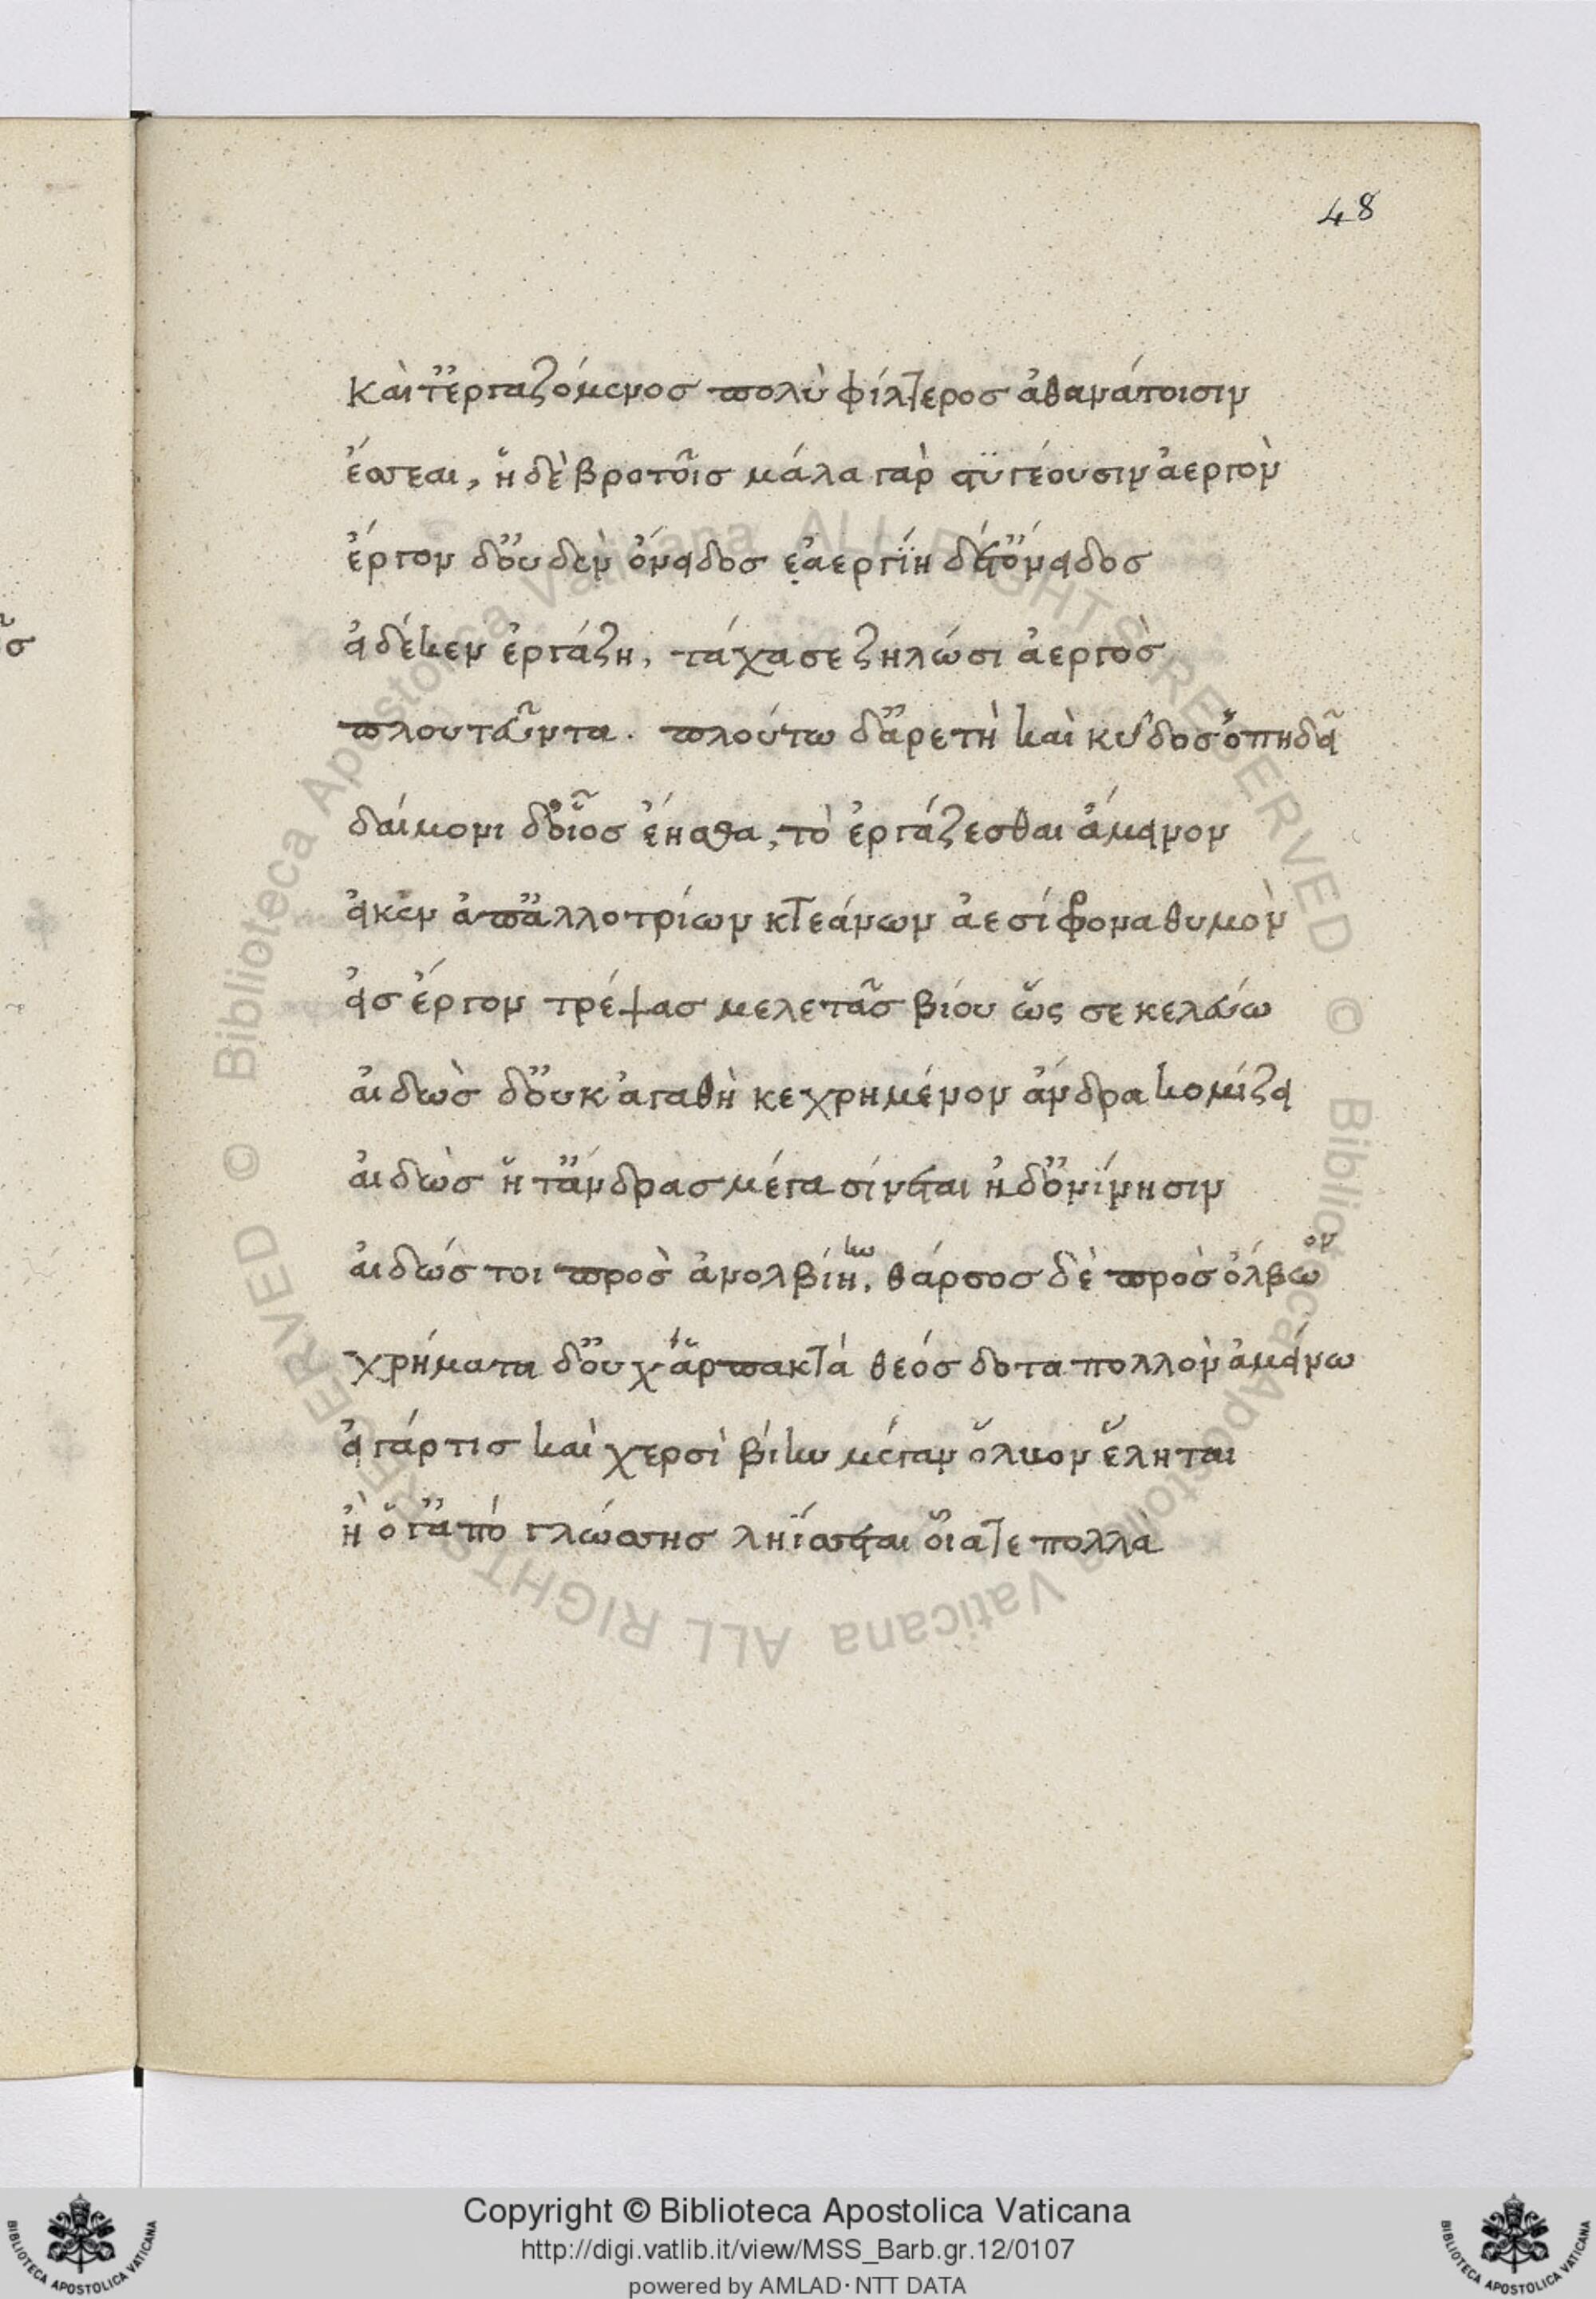 48
Καὶ τ' ἐργαζόμενος πολὺ φίλτερος ἀθανάτοισιν
ἔσσεαι, ἠδὲ βροτοῖς μάλα γὰρ στυγέουσιν ἀεργὸν
ἔργον δ' οὐδὲν ὄνειδος ἐἀεργίη δέ τ' ὄνειδος
εἰ δέ κεν ἐργάζη, τάχα σε ζηλώσι ἀεργὸς
πλουτεῦντα. πλούτω δ' ἀρετὴ καὶ κύδος ὀπηδεῖ
δαίμονι δ' οἷος ἔησθα, τὸ ἐργάζεσθαι ἄμεινον
εἴ κεν ἀπ' ἀλλοτρίων κτεάνων ἀεσίφρονα θυμὸν
εἰς ἔργον τρέψας μελετᾶς βίου ὥς σε κελεύω
αἰδὼς δ' οὐκ ἀγαθὴ κεχρημένον ἄνδρα κομίζει
αἰδὼς ἥ τ' ἄνδρας μέγα σίνεται ἠδ' ὀνίνησιν
αἰδώς τοι πρὸς ἀνολβίη, θάρσος δὲ πρὸς ὄλβω
χρήματα δ' οὐχ ἁρπακτά θεόσδοτα πολλὸν ἀμείνω
εἰ γάρ τις καὶ χερσὶ βίην μέγαν ὄλβον ἕληται
ἢ ὅ γ' ἀπό γλώσσης ληΐσσεται οἷά τε πολλὰ
Copyright © Biblioteca Apostolica Vaticana
http://digi.vatlib.it/view/MSS_Barb.gr.12/0107
powered by AMLAD·NTT DATA
BIBLIOTECA APOSTOLICA VATICANA
BIBLIOTECA APOSTOLICA VATICANA